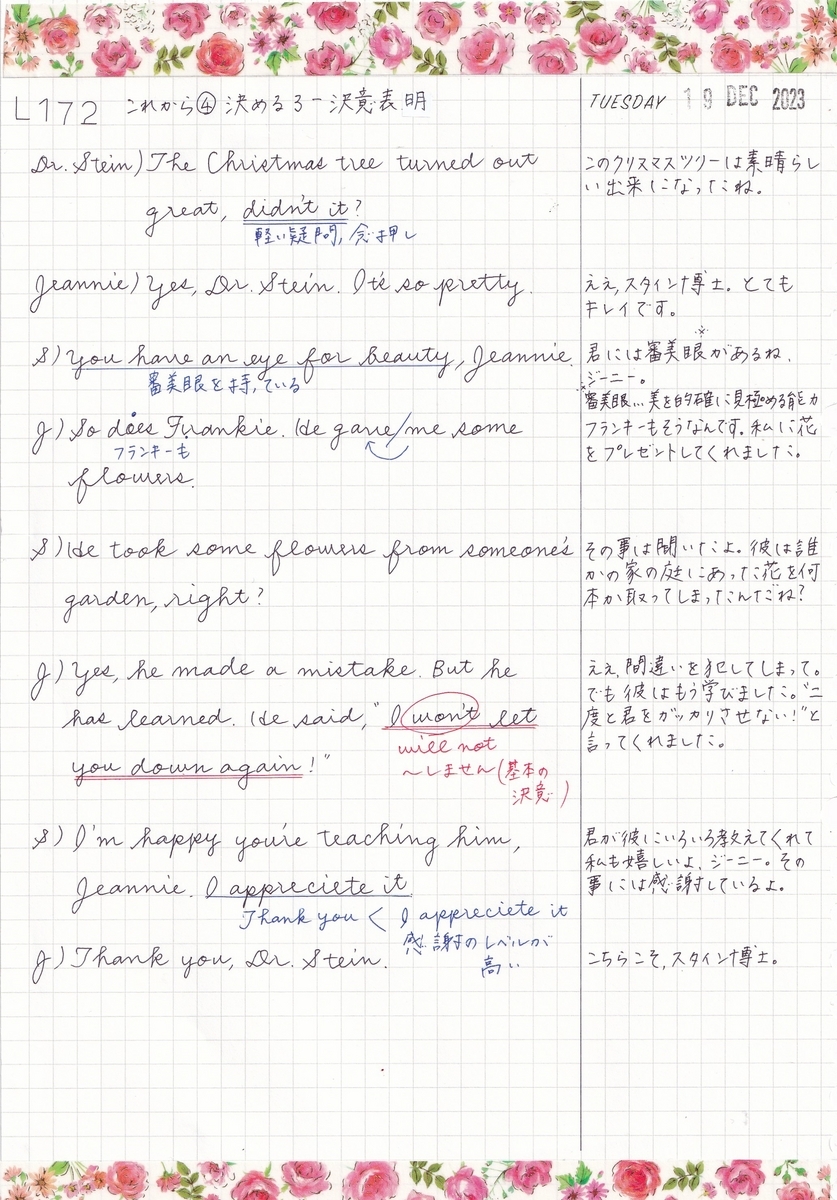 L172 これから④ 決める3ー決意表明
TUESDAY 19 DEC 2023
Dr. Stein) The Christmas tree turned out
great, didn't it?
軽い疑問, 念押し
このクリスマスツリーは素晴らし
い出来になったね。
Jeannie) Yes, Dr. Stein. It's so pretty.
ええ, スタイン博士。とても
キレイです。
S) You have an eye for beauty, Jeannie.
審美眼を持っている
君には審美眼※があるね、
ジーニー。
※審美眼…美を的確に見極める能力
J) So does Frankie. He gave/me some
フランキーも
flowers.
フランキーもそうなんです。私に花
をプレゼントしてくれました。
S) He took some flowers from someone's
garden, right?
その事は聞いたよ。彼は誰
かの家の庭にあった花を何
本か取ってしまったんだね?
J) Yes, he made a mistake. But he
has learned. He said, "I won't let
will not
you down again!"
〜しません(基本の
決意)
ええ, 間違いを犯してしまって。
でも彼はもう学びました。"二
度と君をガッカリさせない!"と
言ってくれました。
S) I'm happy you're teaching him,
Jeannie. I appreciete it
Thank you < I appreciete it
感謝のレベルが
高い
君が彼にいろいろ教えてくれて
私も嬉しいよ、ジーニー。その
事には感謝しているよ。
J) Thank you, Dr. Stein.
こちらこそ, スタイン博士。